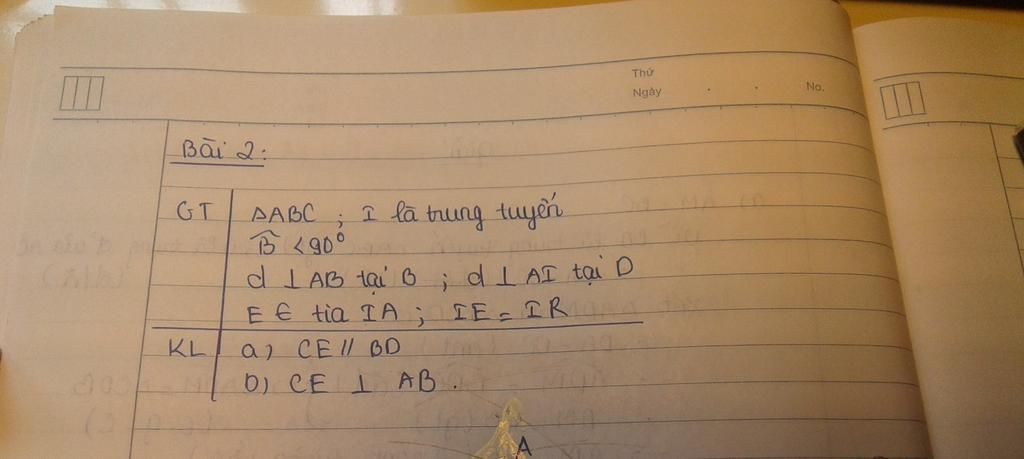 Thứ
Ngày . . No.
Bài 2:
GT ΔABC ; I là trung tuyến
B̂ < 90°
d ⊥ AB tại B ; d ⊥ AI tại D
E ∈ tia IA ; IE = IR
KL a) CE // BD
b) CE ⊥ AB .
A